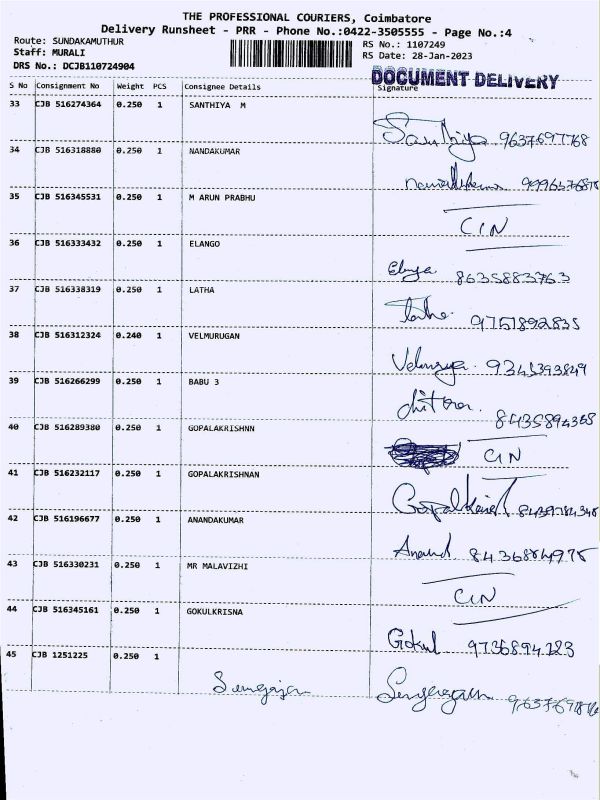 THE PROFESSIONAL COURIERS, Coimbatore
Delivery Runsheet - PRR - Phone No.:0422-3505555 - Page No.:4
Route: SUNDAKAMUTHUR
RS No.: 1107249
Staff: MURALI
RS Date: 28-Jan-2023
DRS No.: DCJB110724904
DOCUMENT DELIVERY
S No Consignment No Weight PCS Consignee Details Signature
33 CJB 516274364 0.250 1 SANTHIYA M
Santhiya 9637697768
34 CJB 516318880 0.250 1 NANDAKUMAR
35 CJB 516345531 0.250 1 M ARUN PRABHU
CIN
36 CJB 516333432 0.250 1 ELANGO
8635883763
37 CJB 516338319 0.250 1 LATHA
Latha 9751892835
38 CJB 516312324 0.240 1 VELMURUGAN
9345393849
39 CJB 516266299 0.250 1 BABU 3
8435894368
40 CJB 516289380 0.250 1 GOPALAKRISHNN
CIN
41 CJB 516232117 0.250 1 GOPALAKRISHNAN
42 CJB 516196677 0.250 1 ANANDAKUMAR
Anand
43 CJB 516330231 0.250 1 MR MALAVIZHI
CIN
44 CJB 516345161 0.250 1 GOKULKRISNA
Gokul 9736894123
45 CJB 1251225 0.250 1